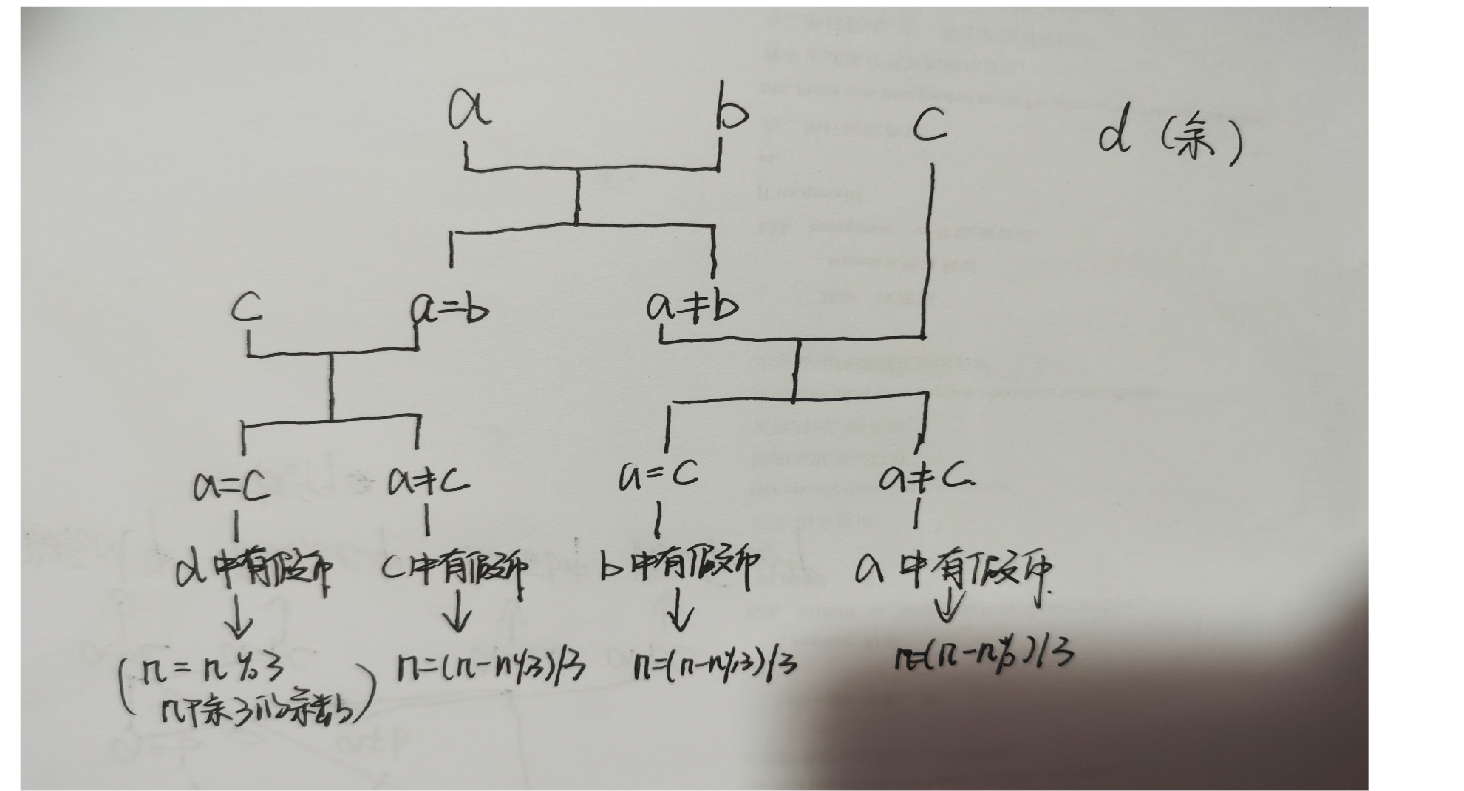 a b c d (余)
c a=b a≠b
a=c a≠c a=c a≠c
d中有假币 c中有假币 b中有假币 a中有假币
n=n%3 n=(n-n%3)/3 n=(n-n%3)/3 n=(n-n%)/3
n除3的余数